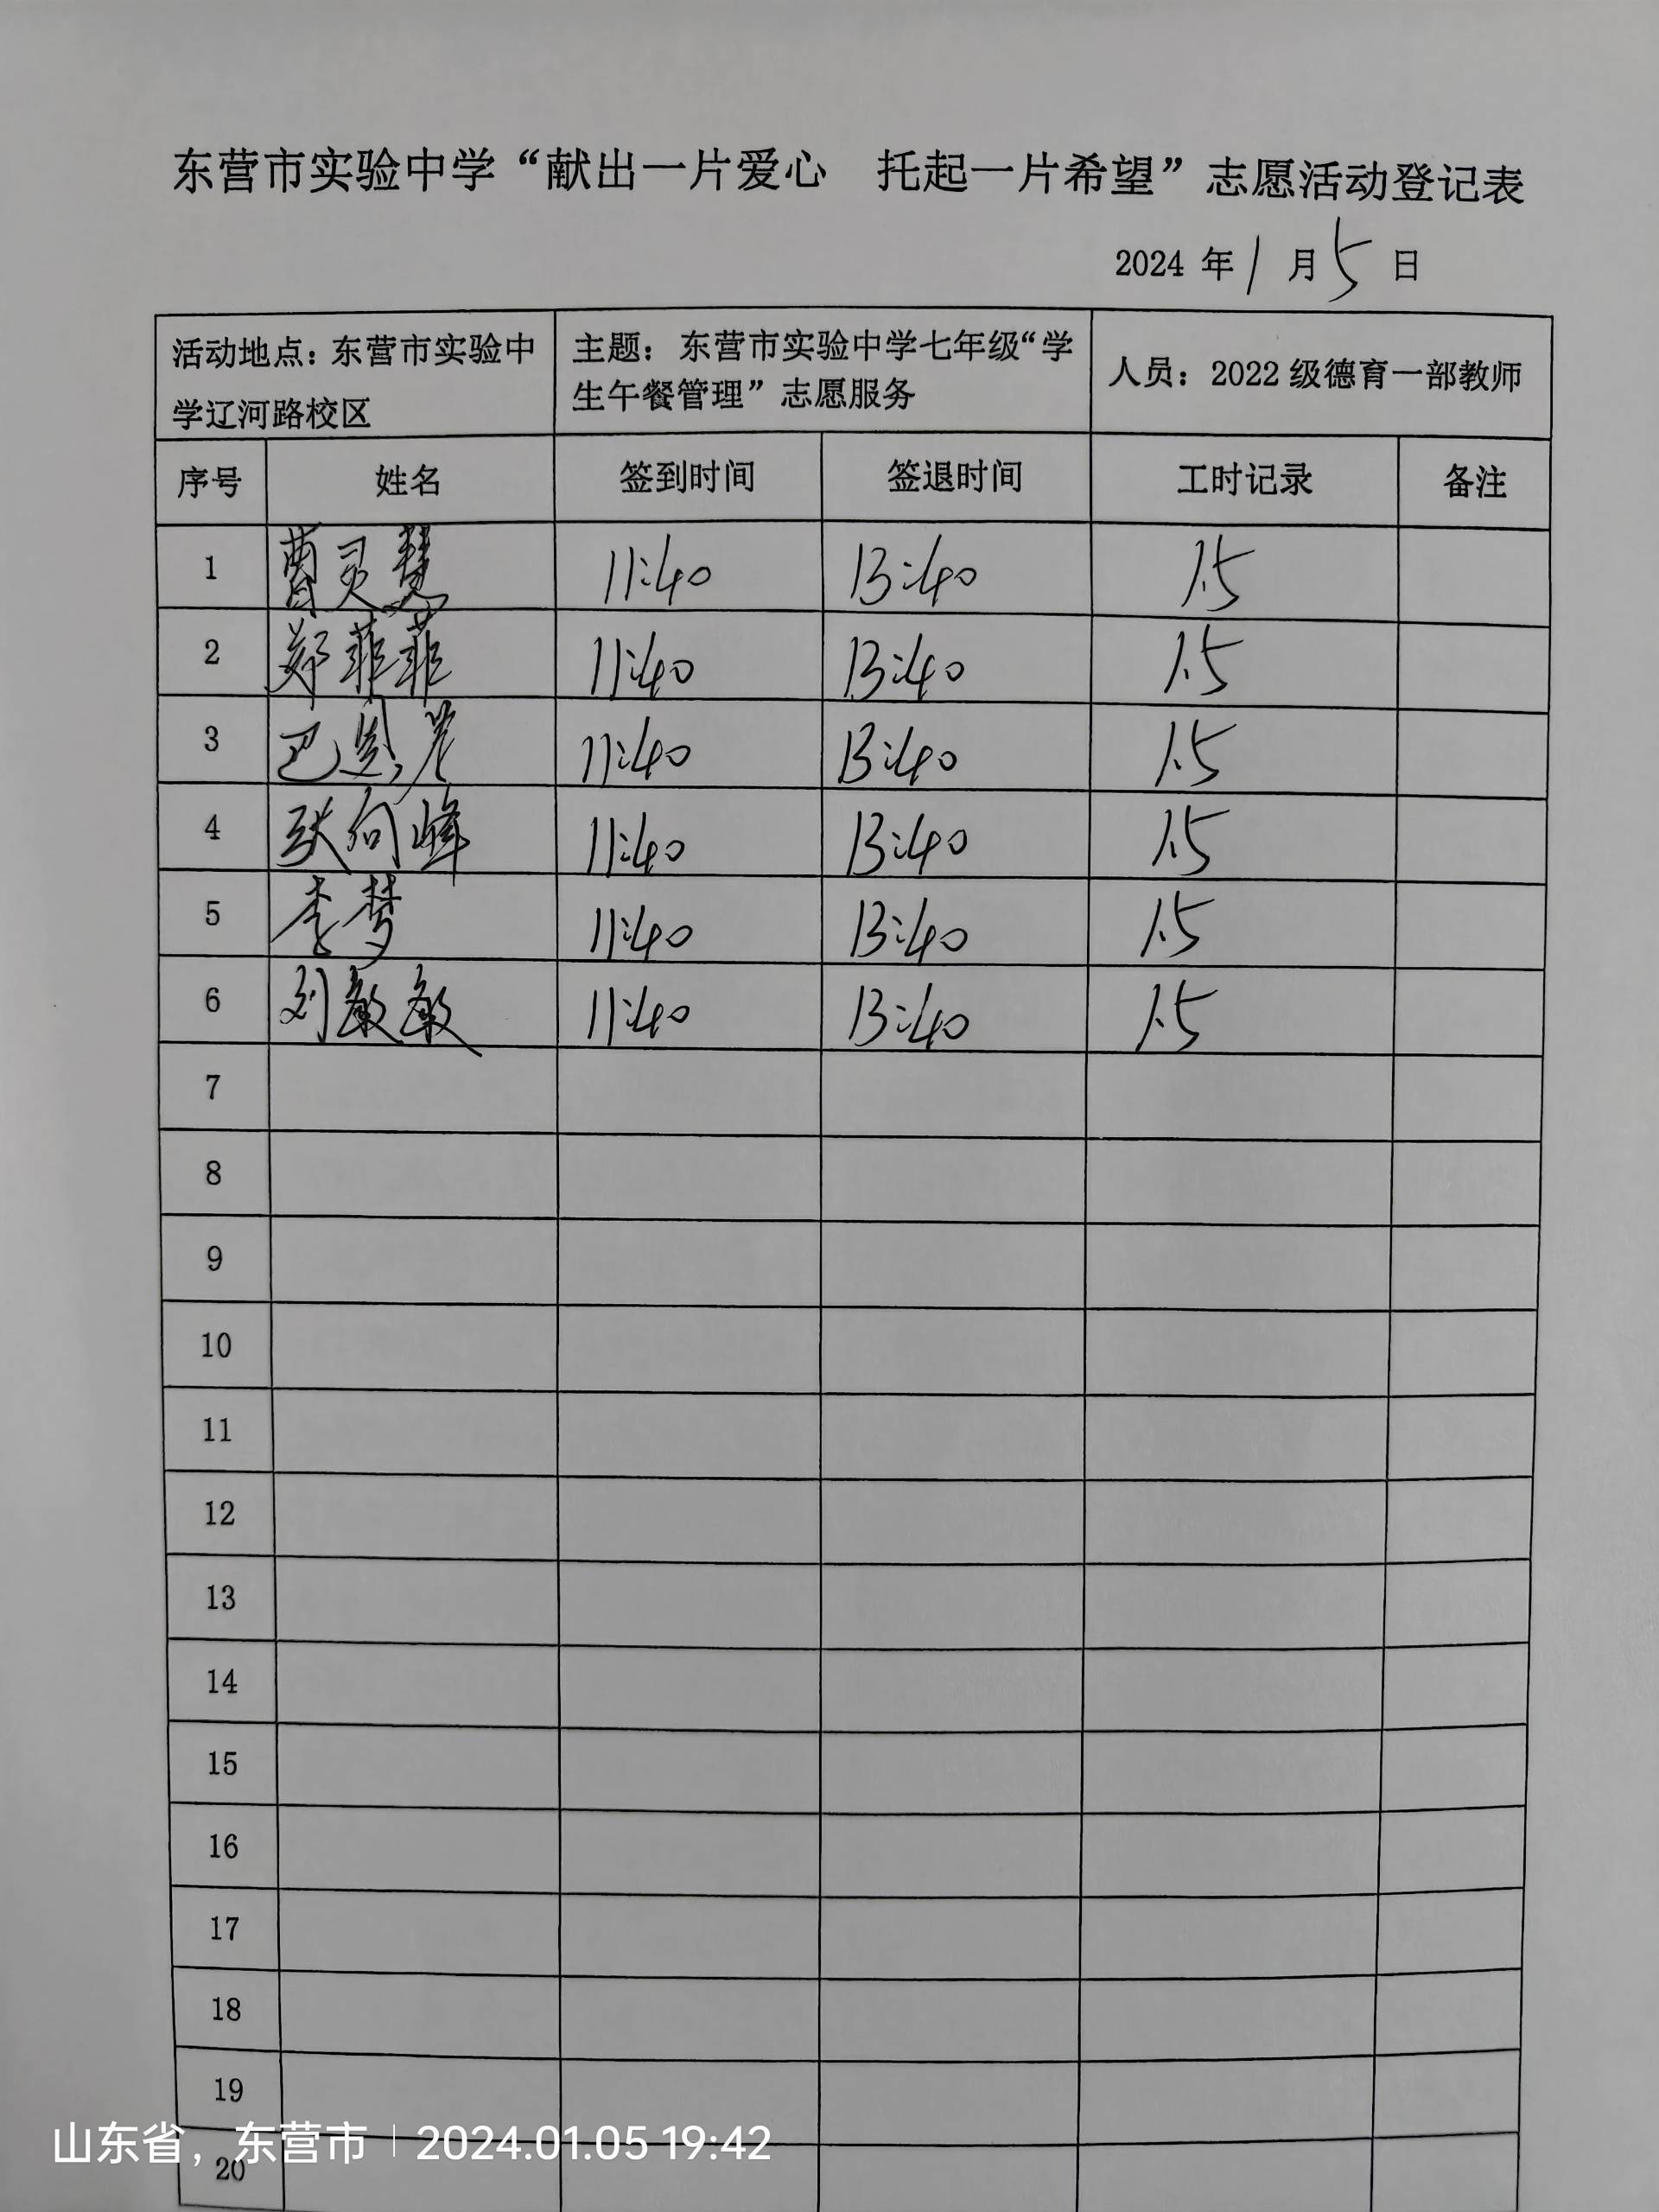 东营市实验中学“献出一片爱心 托起一片希望”志愿活动登记表
2024 年 1 月 5 日
活动地点：东营市实验中
学辽河路校区
主题：东营市实验中学七年级“学
生午餐管理”志愿服务
人员：2022 级德育一部教师
序号 姓名 签到时间 签退时间 工时记录 备注
1 曹灵慧 11:40 13:40 1.5
2 郑菲菲 11:40 13:40 1.5
3 巴 11:40 13:40 1.5
4 张向峰 11:40 13:40 1.5
5 李梦 11:40 13:40 1.5
6 刘敏敏 11:40 13:40 1.5
7
8
9
10
11
12
13
14
15
16
17
18
19
20
山东省，东营市 | 2024.01.05 19:42